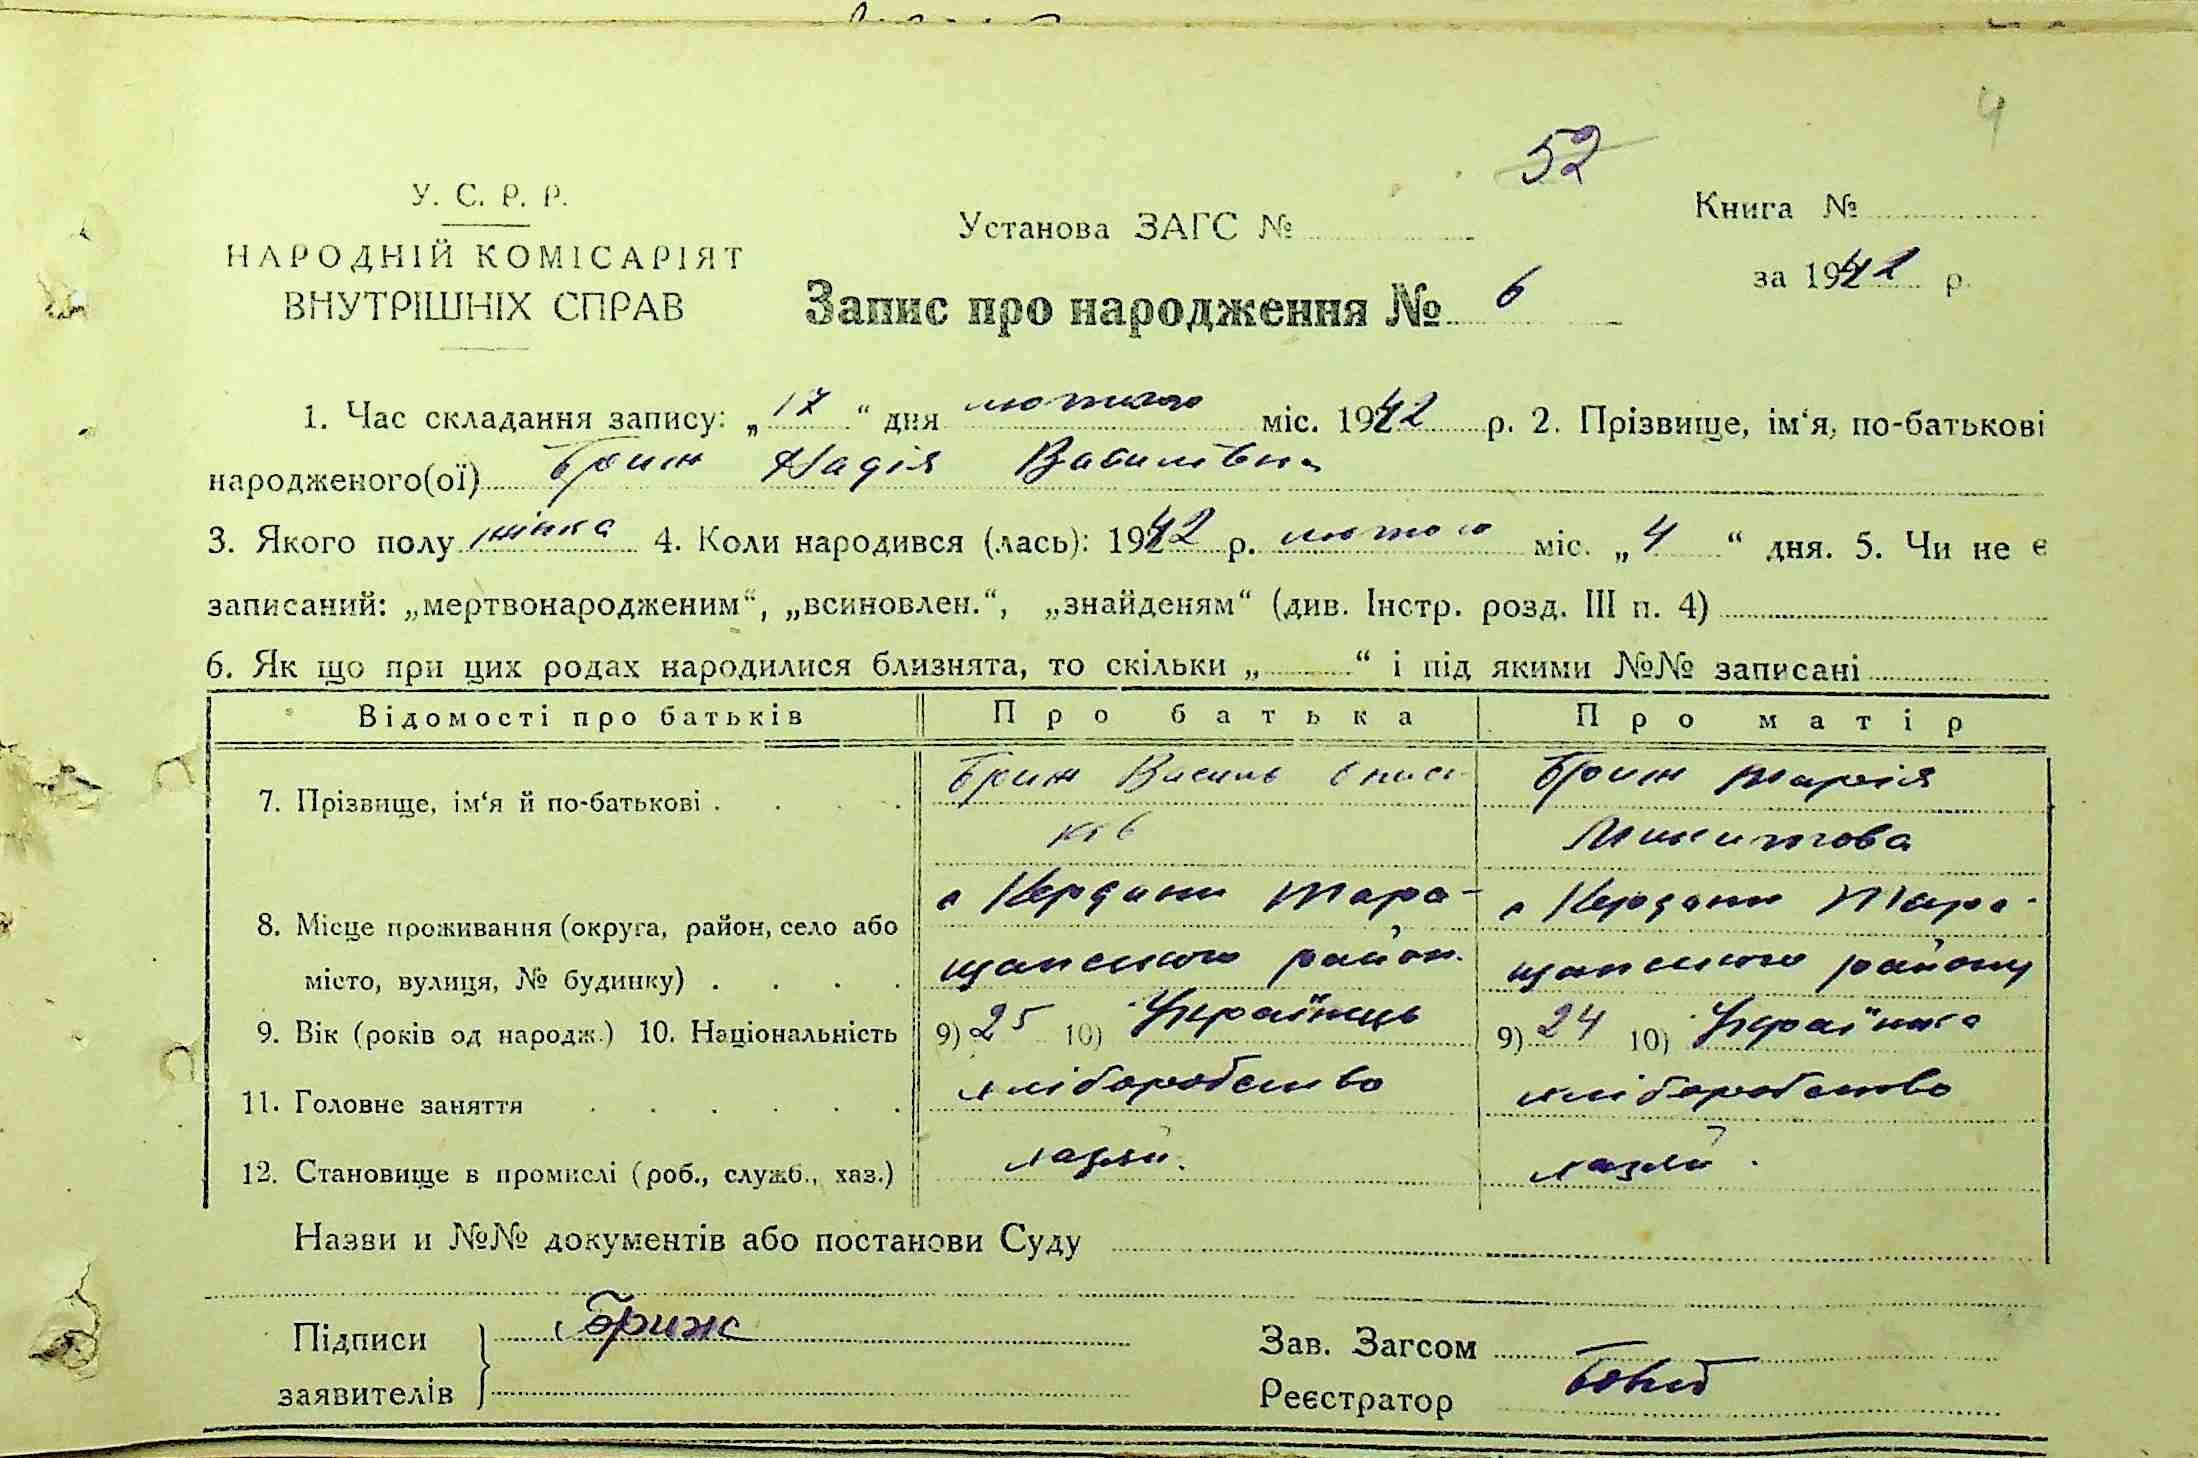 4
52
У. С. Р. Р.
НАРОДНІЙ КОМІСАРІЯТ
ВНУТРІШНІХ СПРАВ
Установа ЗАГС №
Книга №
за 1942 р.
Запис про народження № 6
1. Час складання запису: „17“ дня лютого міс. 1942 р. 2. Прізвище, ім‘я, по-батькові
народженого(ої) Бриж Надія Василівна
3. Якого полу жінка 4. Коли народився (лась): 1942 р. лютого міс. „4“ дня. 5. Чи не є
записаний: „мертвонародженим“, „всиновлен.“, „знайденям“ (див. Інстр. розд. III п. 4)
6. Як що при цих родах народилися близнята, то скільки „ “ і під якими №№ записані
Відомості про батьків Про батька Про матір
7. Прізвище, ім‘я й по-батькові . Бриж Василь Бриж Марія
Микитова
8. Місце проживання (округа, район, село або с Кердани Тара- с Кердани Тара-
місто, вулиця, № будинку) . щанського район. щанського району
9. Вік (років од народж.) 10. Національність 9) 25 10) Українець 9) 24 10) Українка
11. Головне заняття хліборобство хліборобство
12. Становище в промислі (роб., служб., хаз.)
Назви и №№ документів або постанови Суду
Підписи Бриж
заявителів
Зав. Загсом
Реєстратор